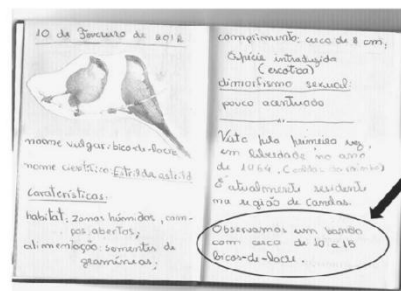 10 de Fevereiro de 2012
nome vulgar: bico-de-lacre
nome científico: Estrilda astrild
Caraterísticas:
habitat: zonas húmidas, cam-
pos abertos;
alimentação: sementes de
gramíneas;
comprimento: cerca de 11 cm;
Espécie introduzida
(exótica)
dimorfismo sexual:
pouco acentuado
Visto pela primeira vez,
em liberdade no ano
de 1964,
É atualmente residente
na região de Canelas.
Observamos um bando
com cerca de 10 a 15
bicos-de-lacre.